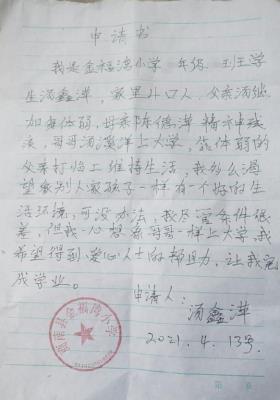 申请书
我是金福湾小学 年级 班学
生汤鑫萍，家里4口人，父亲汤继
加身体弱，母亲陈德萍精神残
疾，哥哥汤溪洋上大学，靠体弱的
父亲打临工维持生活，我多么渴
望象别人家孩子一样有一个好的生
活环境，可没办法，我尽管条件很
差，但我心想象哥哥一样上大学，我
希望得到爱心人士的帮助，让我完
成学业。
申请人：
汤鑫萍
2021.4.13号
县金福湾小学
第 页